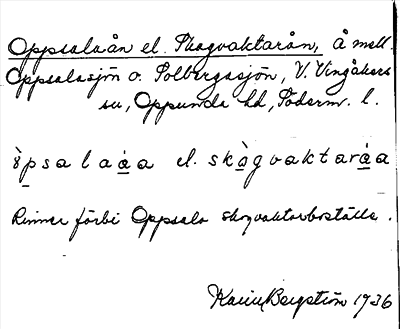 Oppsalaån el. Skogvaktarån, å mell.
Oppsalasjön o. Solbergasjön, V. Vingåkers
sn, Oppunda hd, Söderm. l.
o̊psalaåa el. skògvaktaråa
Rinner förbi Oppsala skogvaktarboställe.
Karin Bergström 1936